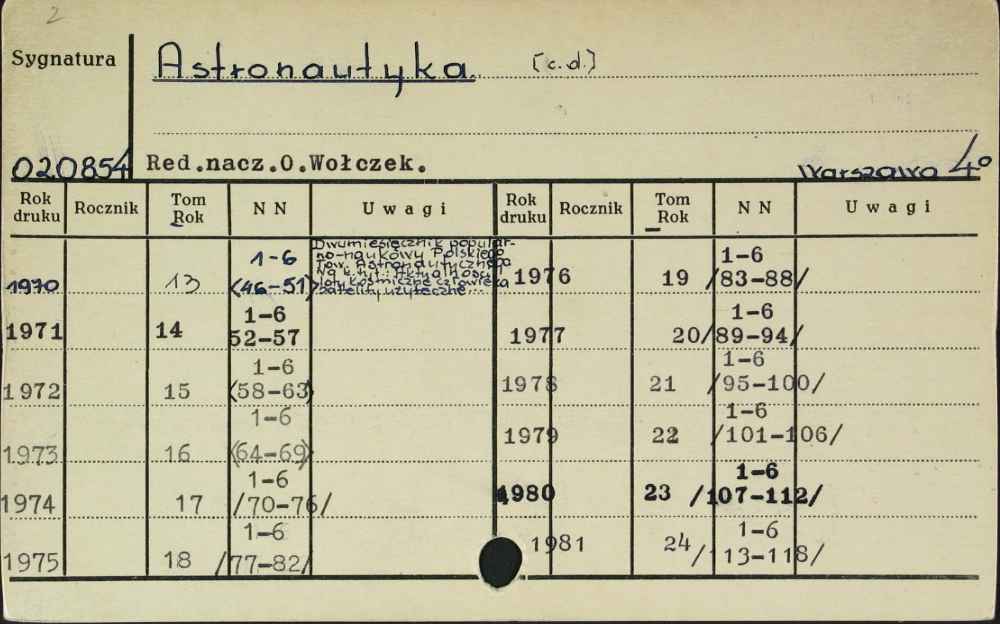 2
Sygnatura
Astronautyka [c.d.]
020854 Red.nacz.O.Wołczek. Warszawa 4°
Rok druku Rocznik Tom Rok NN Uwagi Rok druku Rocznik Tom Rok NN Uwagi
1970 13 1-6 (46-51) Dwumiesięcznik popular-
no-naukowy Polskiego
Tow. Astronautycznego
Na k. tyt.: Aktualności
loty kosmiczne człowieka
satelity użyteczne...
1971 14 1-6 52-57
1972 15 1-6 (58-63)
1973 16 1-6 (64-69)
1974 17 1-6 /70-76/
1975 18 1-6 /77-82/
1976 19 1-6 /83-88/
1977 20 1-6 /89-94/
1978 21 1-6 /95-100/
1979 22 1-6 /101-106/
1980 23 1-6 /107-112/
1981 24 1-6 /113-118/